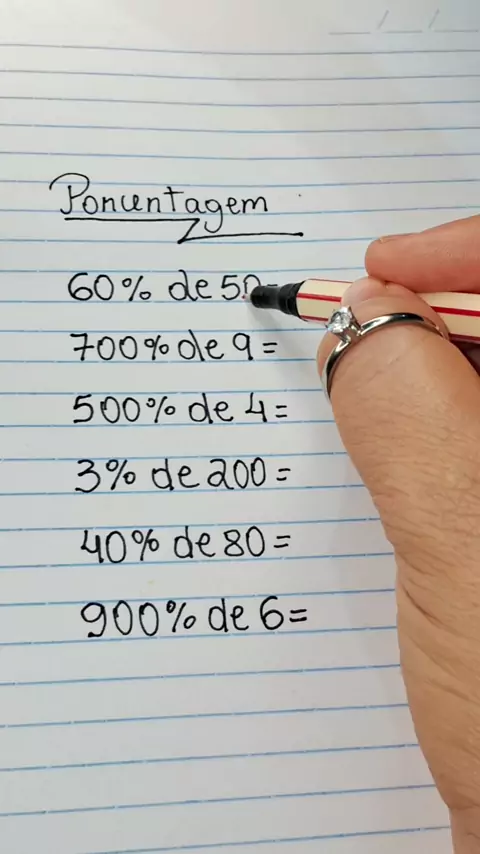 Porcentagem
60% de 50=
700% de 9=
500% de 4=
3% de 200=
40% de 80=
900% de 6=